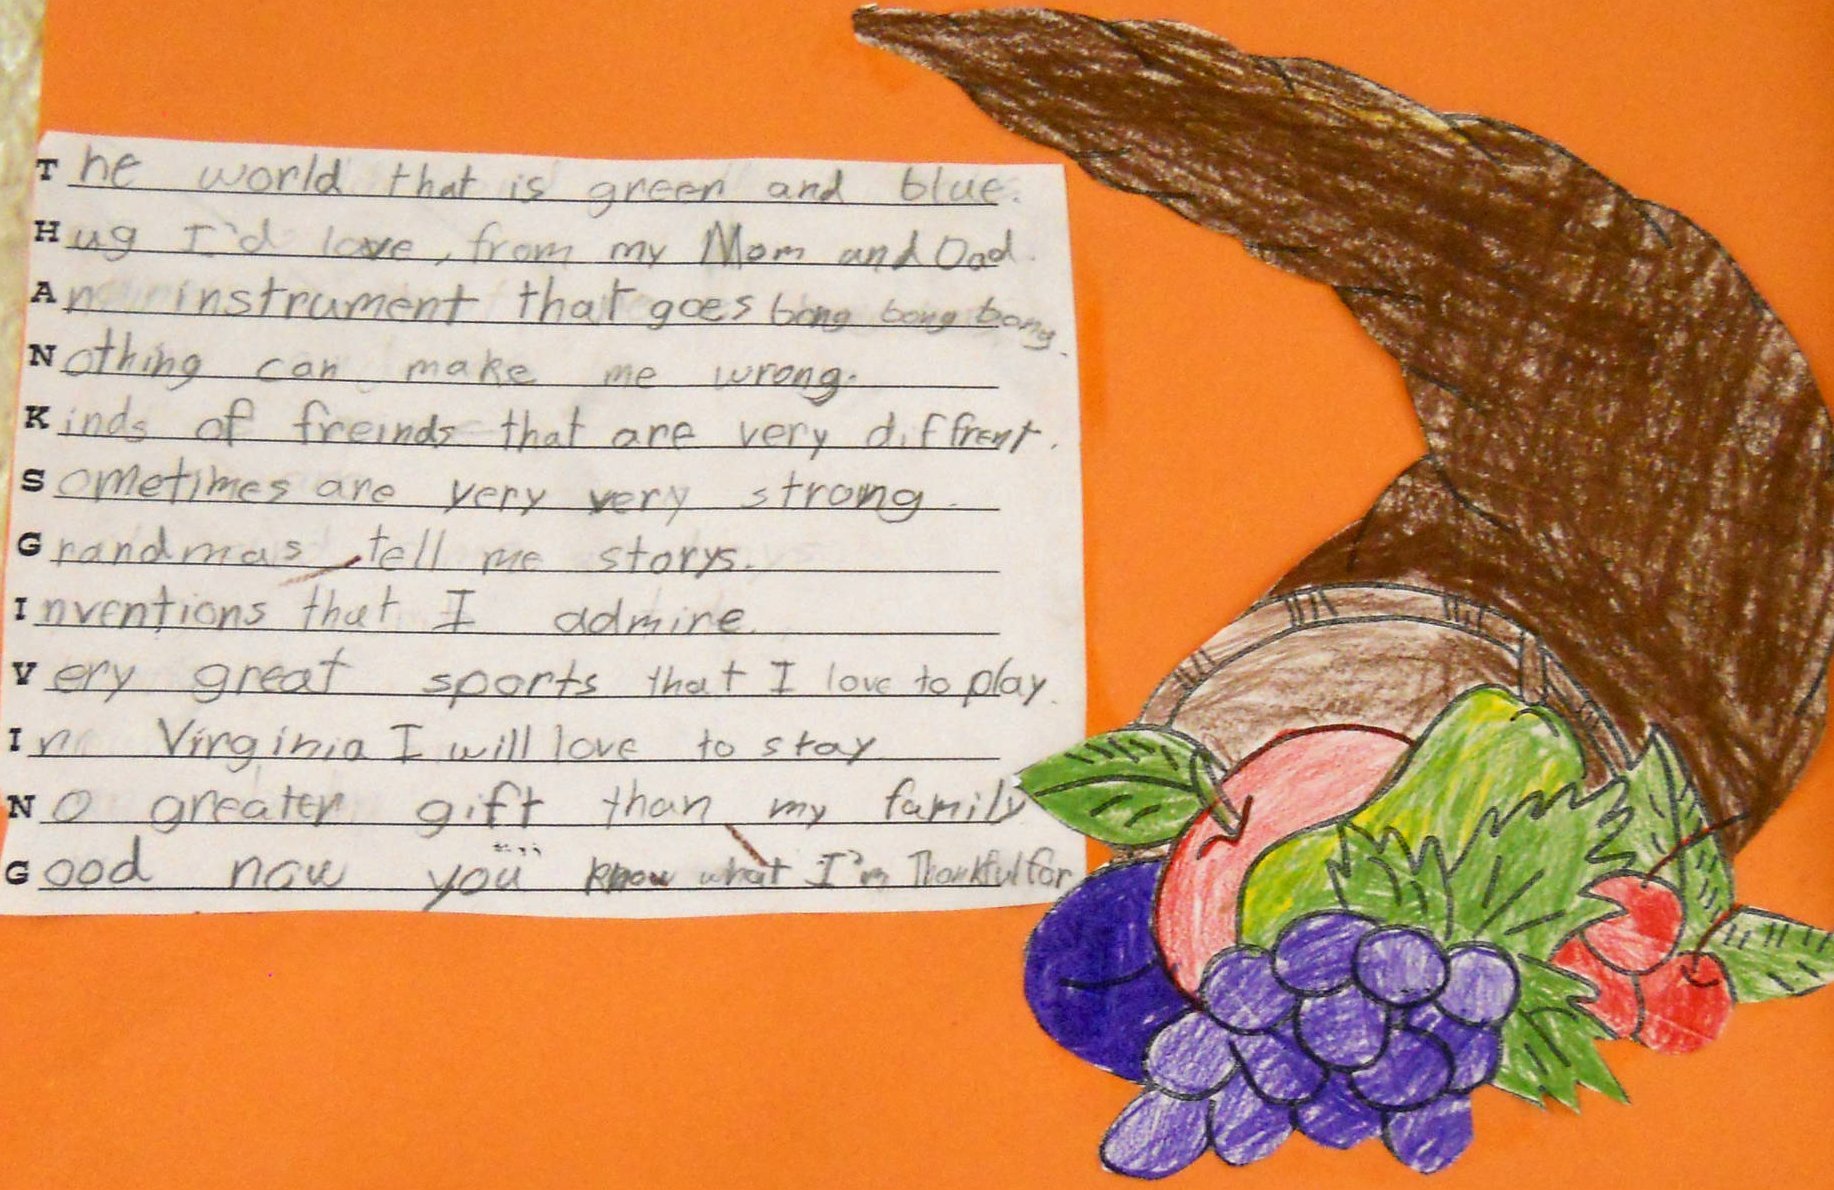 The world that is green and blue.
Hug I'd love, from my Mom and Dad.
An instrument that goes bong bong bong.
Nothing can make me wrong.
Kinds of freinds that are very diffrent.
Sometimes are very very strong.
Grandmas tell me storys.
Inventions that I admire.
Very great sports that I love to play.
In Virginia I will love to stay
No greater gift than my family
Good now you know what I'm Thankful for